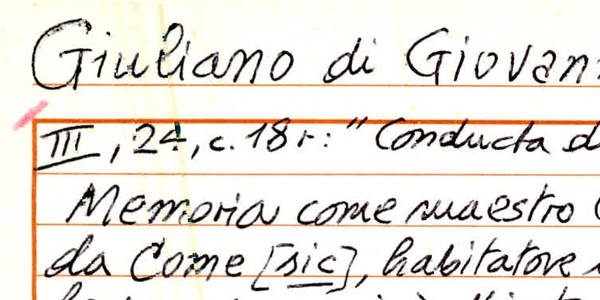 Giuliano di Giovan
III, 24, c. 18r: "Conducta d
Memoria come maestro
da Come [sic], habitatore